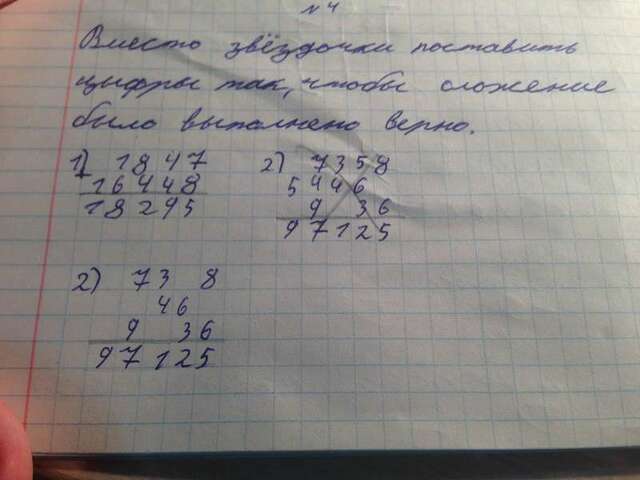 №4
Вместо звёздочки поставить
цифры так, чтобы сложение
было выполнено верно.
1) 1847
+
16448
18295
2) 7358
5446
9 36
97125
2) 73 8
46
9 36
97125